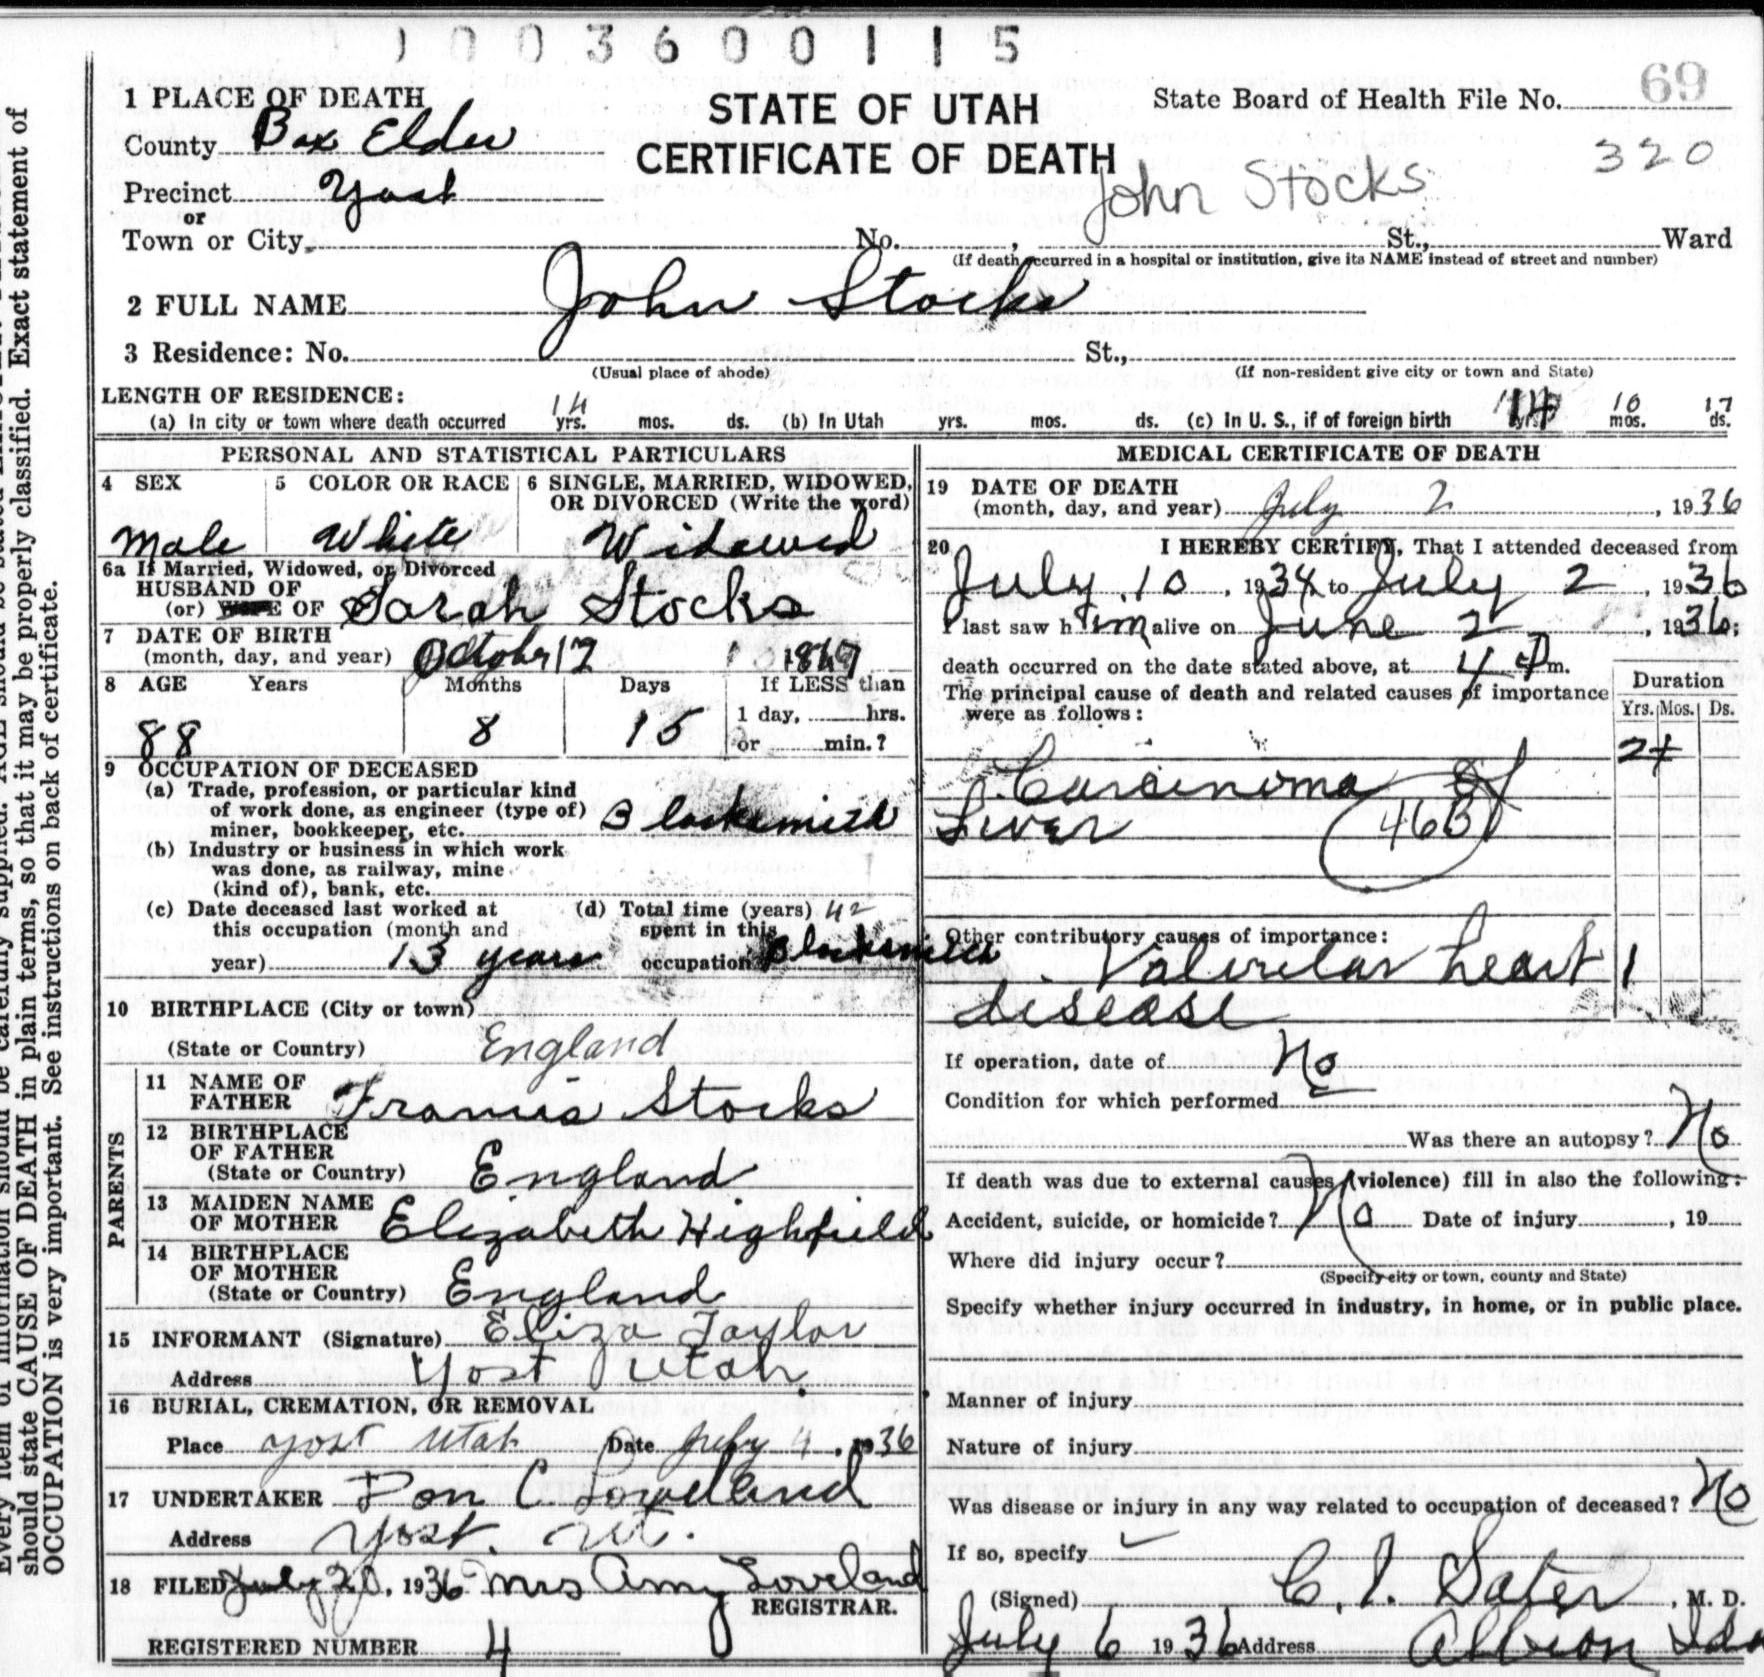 1003600115
69
1 PLACE OF DEATH
STATE OF UTAH
State Board of Health File No.
County Box Elder
CERTIFICATE OF DEATH
320
John Stocks
Precinct Yost
or
Town or City No. , St., Ward
(If death occurred in a hospital or institution, give its NAME instead of street and number)
2 FULL NAME John Stocks
3 Residence: No. St.,
(Usual place of abode) (If non-resident give city or town and State)
LENGTH OF RESIDENCE:
(a) In city or town where death occurred 14 yrs. mos. ds. (b) In Utah yrs. mos. ds. (c) In U. S., if of foreign birth yrs. 10 mos. 17 ds.
PERSONAL AND STATISTICAL PARTICULARS
4 SEX 5 COLOR OR RACE 6 SINGLE, MARRIED, WIDOWED,
OR DIVORCED (Write the word)
Male White Widowed
6a If Married, Widowed, or Divorced
HUSBAND OF
(or) WIFE OF Sarah Stocks
7 DATE OF BIRTH
(month, day, and year) October 17
8 AGE Years Months Days If LESS than
1 day, hrs.
88 8 15 or min.?
9 OCCUPATION OF DECEASED
(a) Trade, profession, or particular kind
of work done, as engineer (type of)
miner, bookkeeper, etc. Blacksmith
(b) Industry or business in which work
was done, as railway, mine
(kind of), bank, etc.
(c) Date deceased last worked at (d) Total time (years) 42
this occupation (month and spent in this
year) 13 years occupation Blacksmith
10 BIRTHPLACE (City or town)
(State or Country) England
PARENTS
11 NAME OF
FATHER Francis Stocks
12 BIRTHPLACE
OF FATHER
(State or Country) England
13 MAIDEN NAME
OF MOTHER Elizabeth Highfield
14 BIRTHPLACE
OF MOTHER
(State or Country) England
15 INFORMANT (Signature) Eliza Taylor
Address Yost Utah.
16 BURIAL, CREMATION, OR REMOVAL
Place Yost Utah Date July 4, 1936
17 UNDERTAKER Don C Loveland
Address Yost. Ut.
18 FILED July 20, 1936 Mrs Amy Loveland
REGISTRAR.
REGISTERED NUMBER 4
MEDICAL CERTIFICATE OF DEATH
19 DATE OF DEATH
(month, day, and year) July 2, 1936
20 I HEREBY CERTIFY, That I attended deceased from
July 10, 1934 to July 2, 1936
I last saw him alive on June 2, 1936;
death occurred on the date stated above, at 4 P m.
The principal cause of death and related causes of importance
were as follows:
Duration
Yrs. Mos. Ds.
2+
Carcinoma of
Liver 46B
Other contributory causes of importance:
Valvular heart 1
disease
If operation, date of No
Condition for which performed
Was there an autopsy? No
If death was due to external causes (violence) fill in also the following:
Accident, suicide, or homicide? No Date of injury , 19
Where did injury occur?
(Specify city or town, county and State)
Specify whether injury occurred in industry, in home, or in public place.
Manner of injury
Nature of injury
Was disease or injury in any way related to occupation of deceased? No
If so, specify
(Signed) C. I. Sater, M. D.
July 6 1936 Address Albion Ida
should state CAUSE OF DEATH in plain terms, so that it may be properly classified. Exact statement of
OCCUPATION is very important. See instructions on back of certificate.